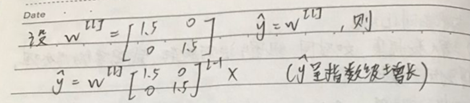 Date
设 w^[l] = [1.5 0; 0 1.5] ŷ = w^[l] ,则
ŷ = w^[l] [1.5 0; 0 1.5]^(l-1) x (ŷ呈指数级增长)